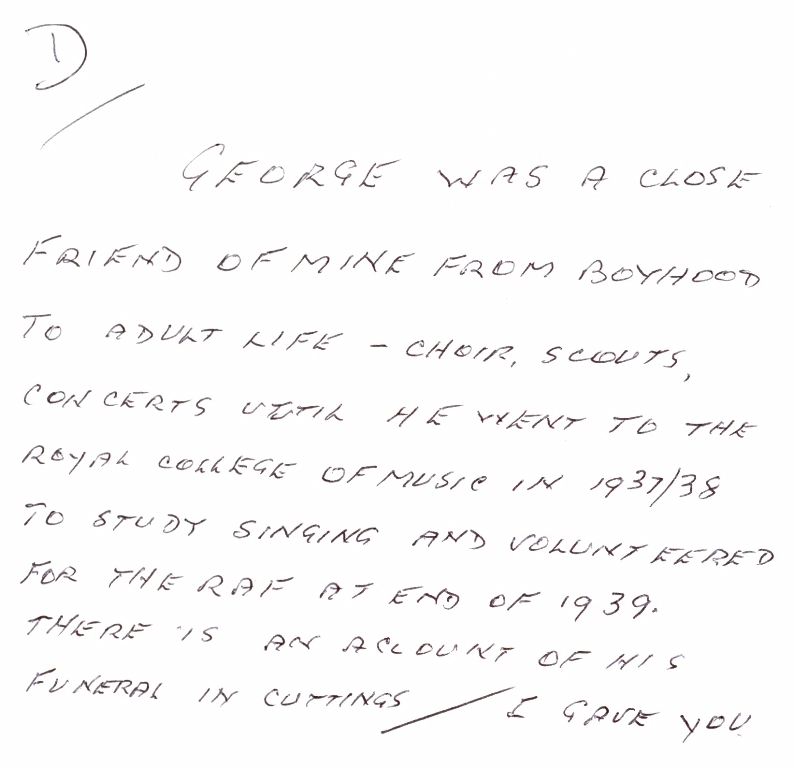 1)
GEORGE WAS A CLOSE
FRIEND OF MINE FROM BOYHOOD
TO ADULT LIFE – CHOIR, SCOUTS,
CONCERTS UNTIL HE WENT TO THE
ROYAL COLLEGE OF MUSIC IN 1937/38
TO STUDY SINGING AND VOLUNTEERED
FOR THE RAF AT END OF 1939.
THERE IS AN ACCOUNT OF HIS
FUNERAL IN CUTTINGS / I GAVE YOU